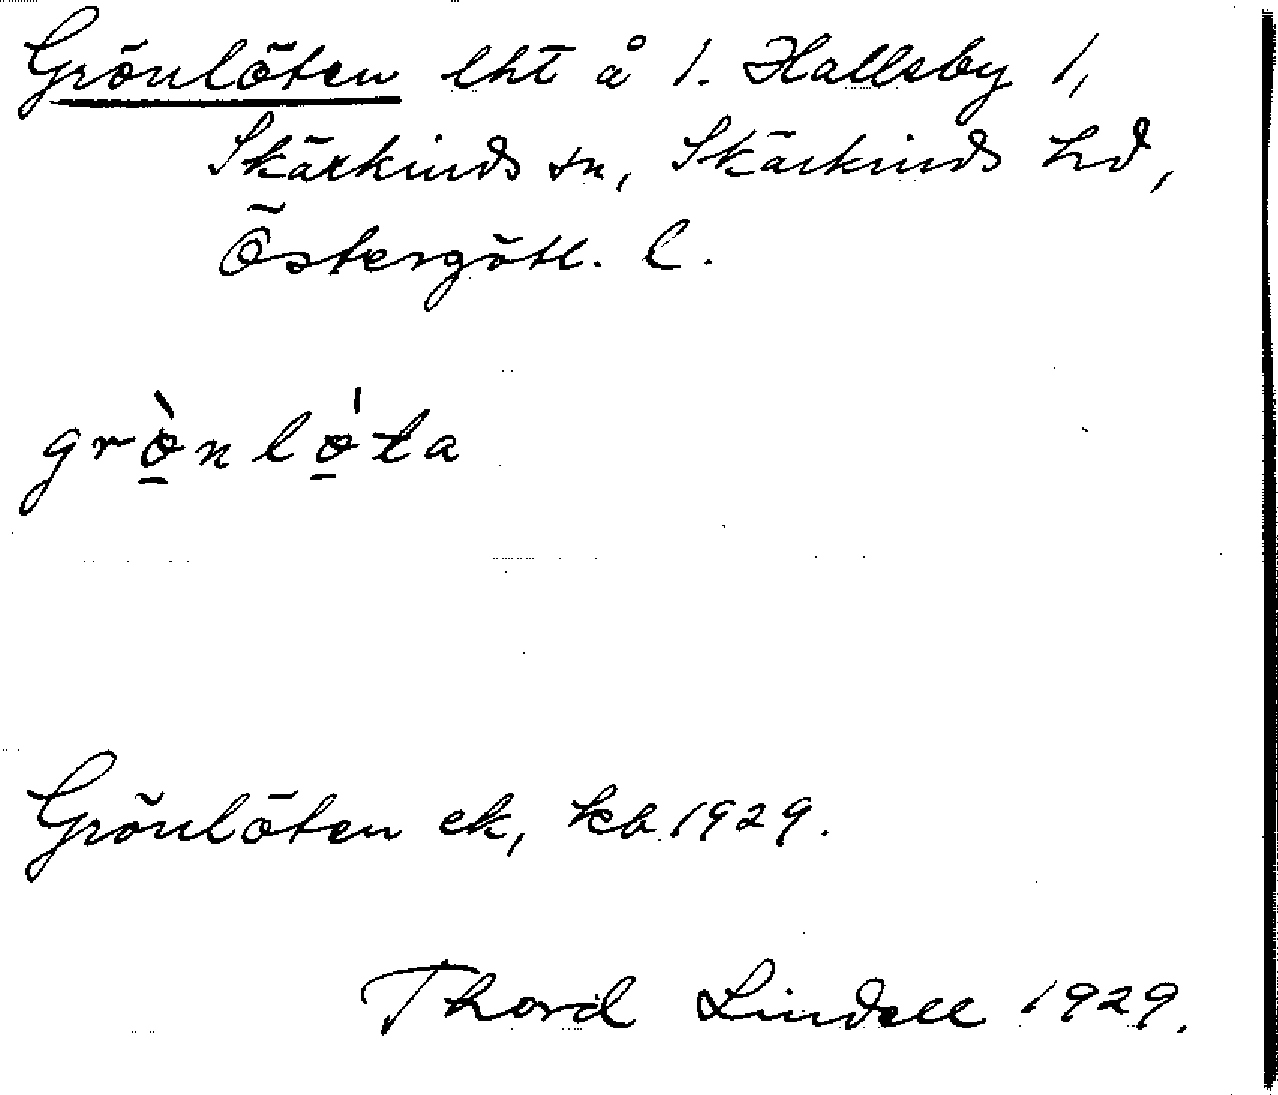 Grönlöten lht å 1. Hallsby 1,
Skärkinds sn, Skärkinds hd,
Östergötl. l.
grø̀nlǿta
Grönlöten ek, kb 1929.
Thord Lindell 1929.